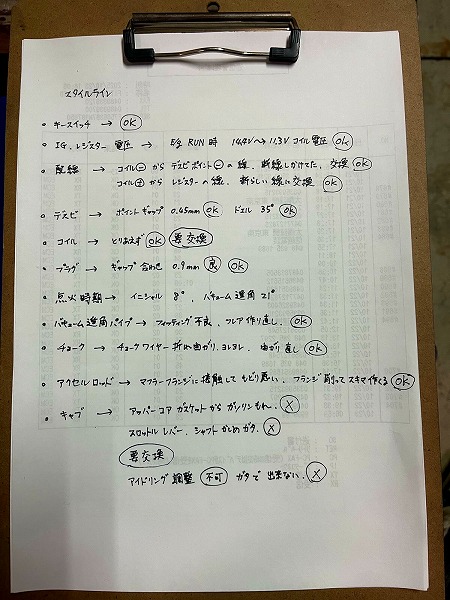 スタイルライン
・キースイッチ → OK
・IG.レジスター 電圧 → E/g RUN 時 14.4V〜→11.3V コイル電圧 OK
・配線 → コイル⊖から デスビポイント⊖の線、断線しかけてた。交換 OK
コイル⊕から レジスターの線、新らしい線に交換 OK
・デスビ → ポイントギャップ 0.45mm OK ドエル 35° OK
・コイル → とりあえず OK 要交換
・プラグ → ギャップ合わせ 0.9mm 良 OK
・点火時期 → イニシャル 8°、バキューム進角 21°
・バキューム進角パイプ → フィッティング不良、フレア作り直し。OK
・チョーク → チョークワイヤー 折れ曲がり、ヨレヨレ、曲がり直し OK
・アクセルロッド → マフラーフランジに接触してもどり悪い、フランジ削ってスキマ作くる OK
・キャブ → アッパーコアガスケットからガソリンもれ。×
スロットルレバー、シャフトかしめガタ。×
要交換
アイドリング調整 不可 ガタで出来ない。×